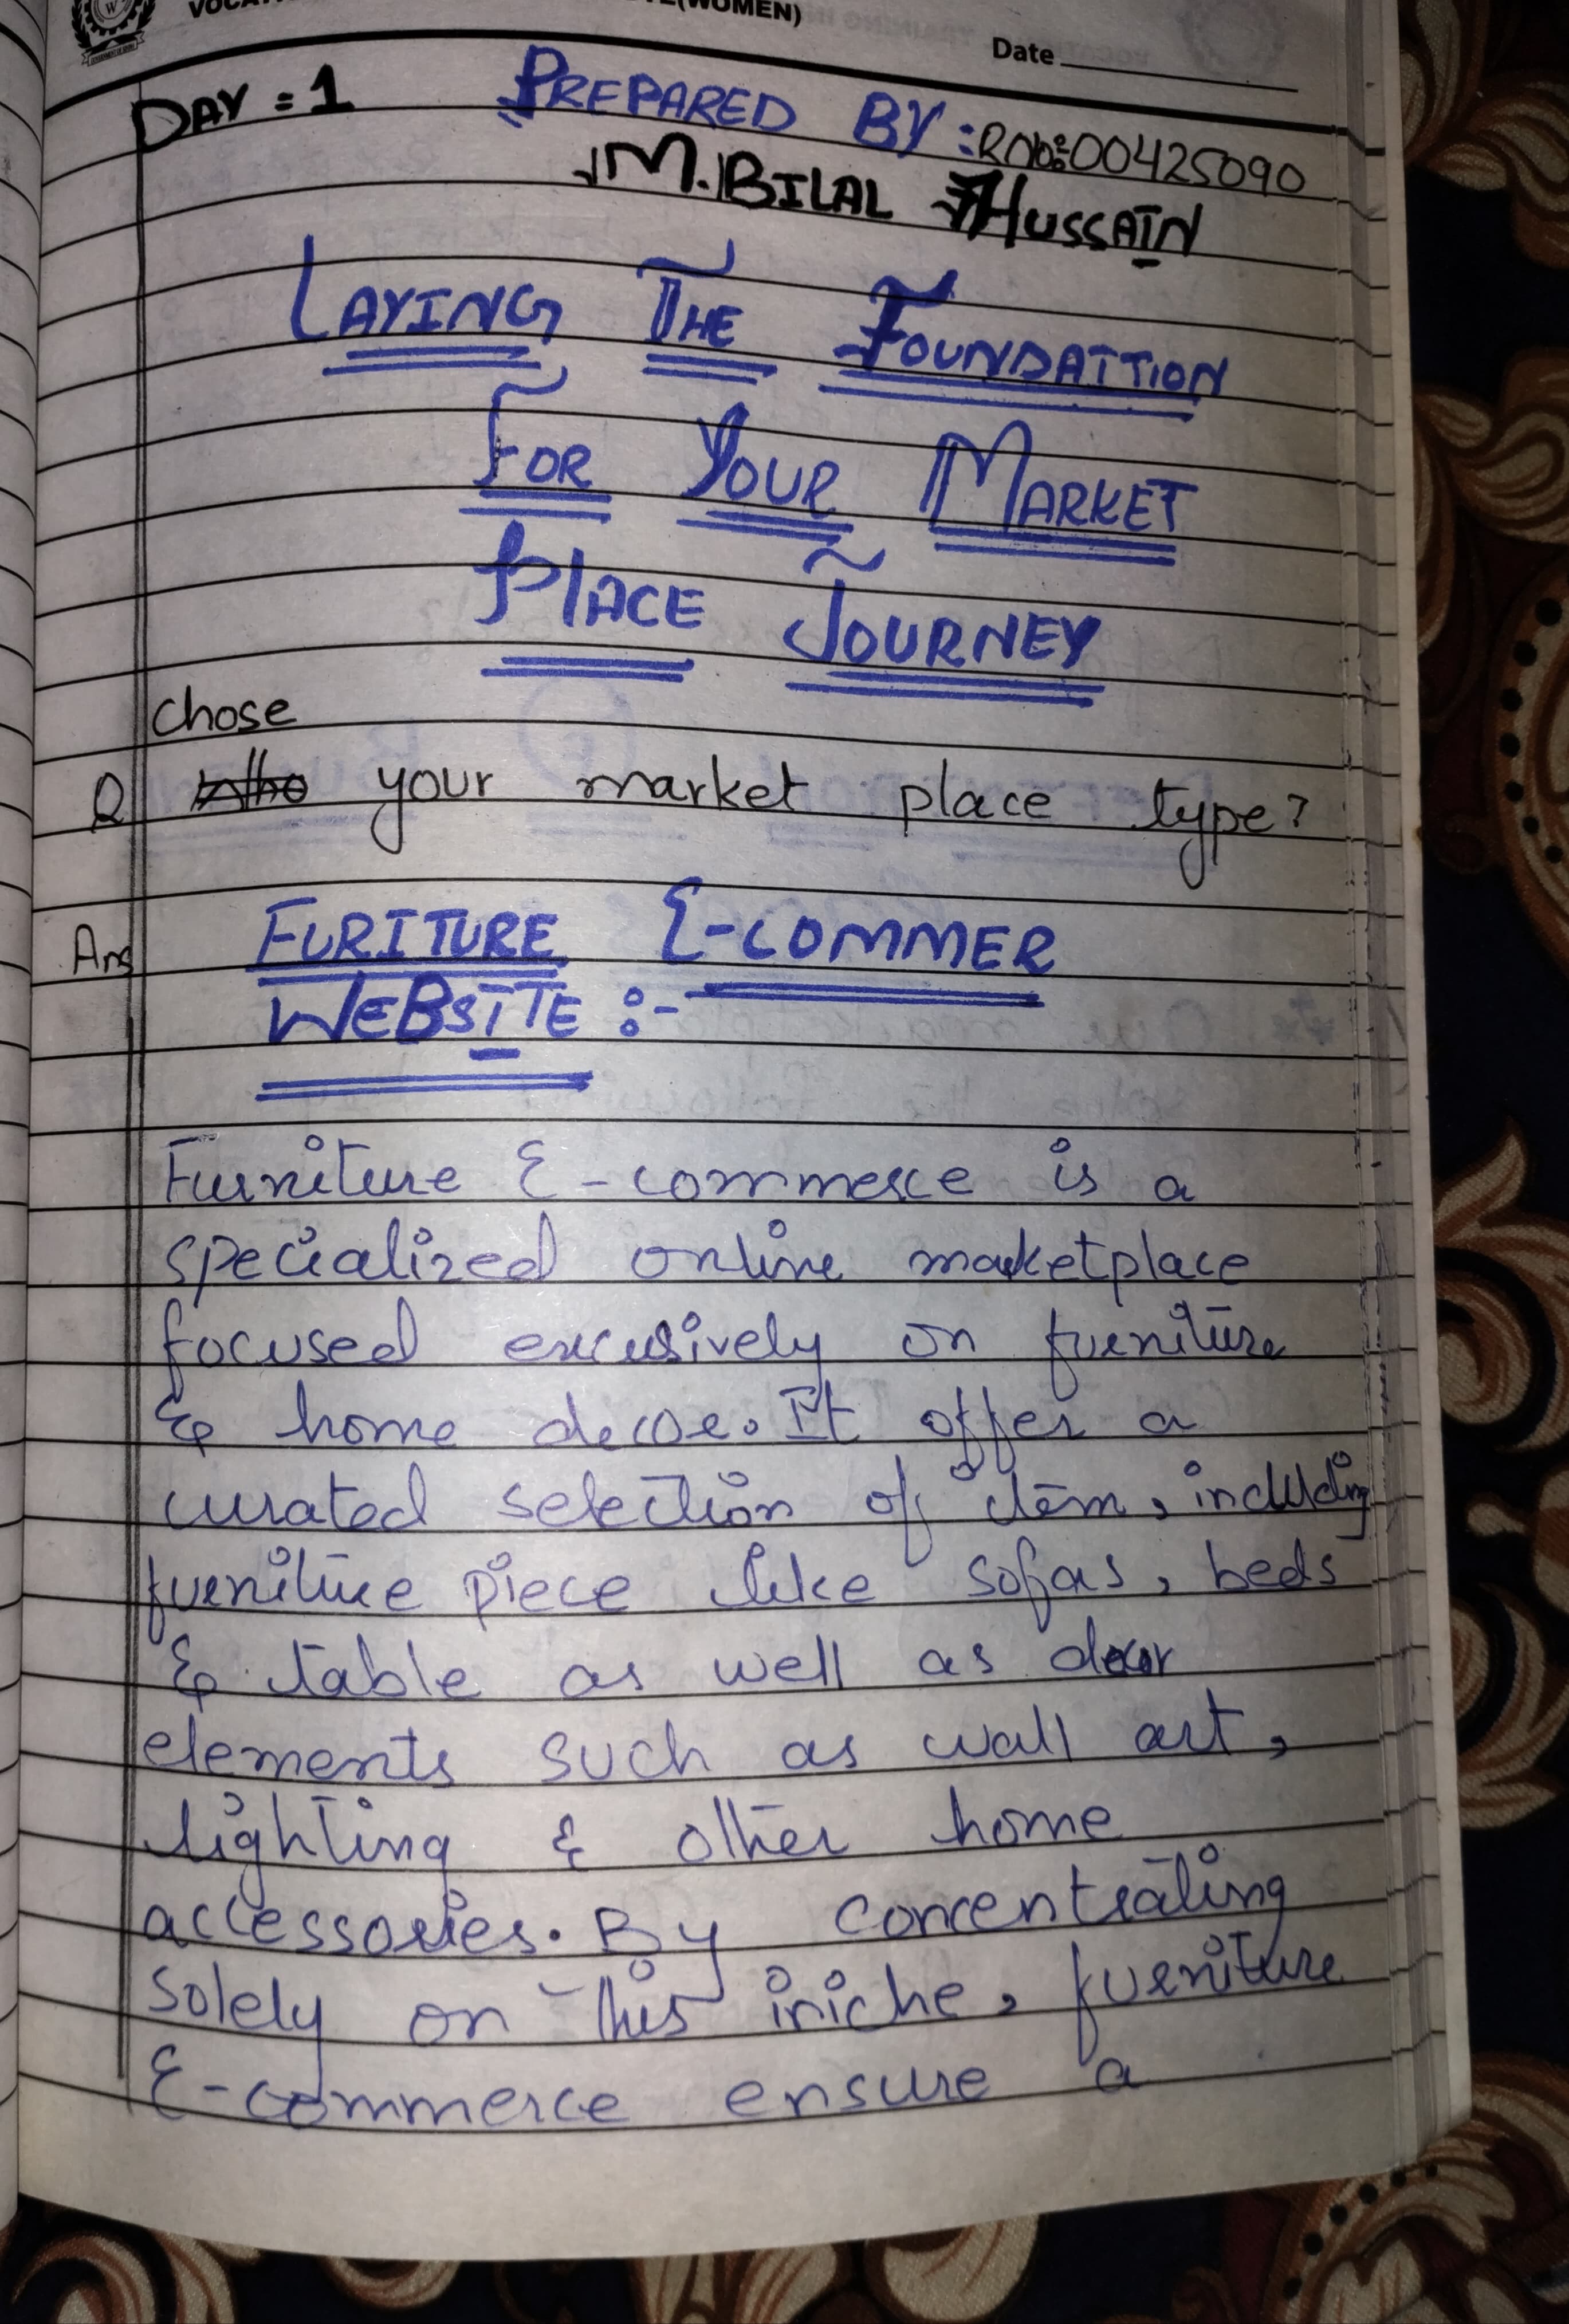 (WOMEN)
Date
DAY = 1 PREPARED BY : R No: 00425090
M. BILAL HUSSAIN
LAYING THE FOUNDATTION
FOR YOUR MARKET
PLACE JOURNEY
chose
Q your market place type?
Ans FURITURE E-COMMER
WEBSITE :-
Furniture E-commerce is a
specialized online marketplace
focused excusively on furniture
& home decor. It offer a
curated selection of item, including
furniture piece like sofas, beds
& table as well as decor
elements such as wall art,
lighting & other home
accessories. By concentrating
solely on this iniche, furniture
E-commerce ensure a